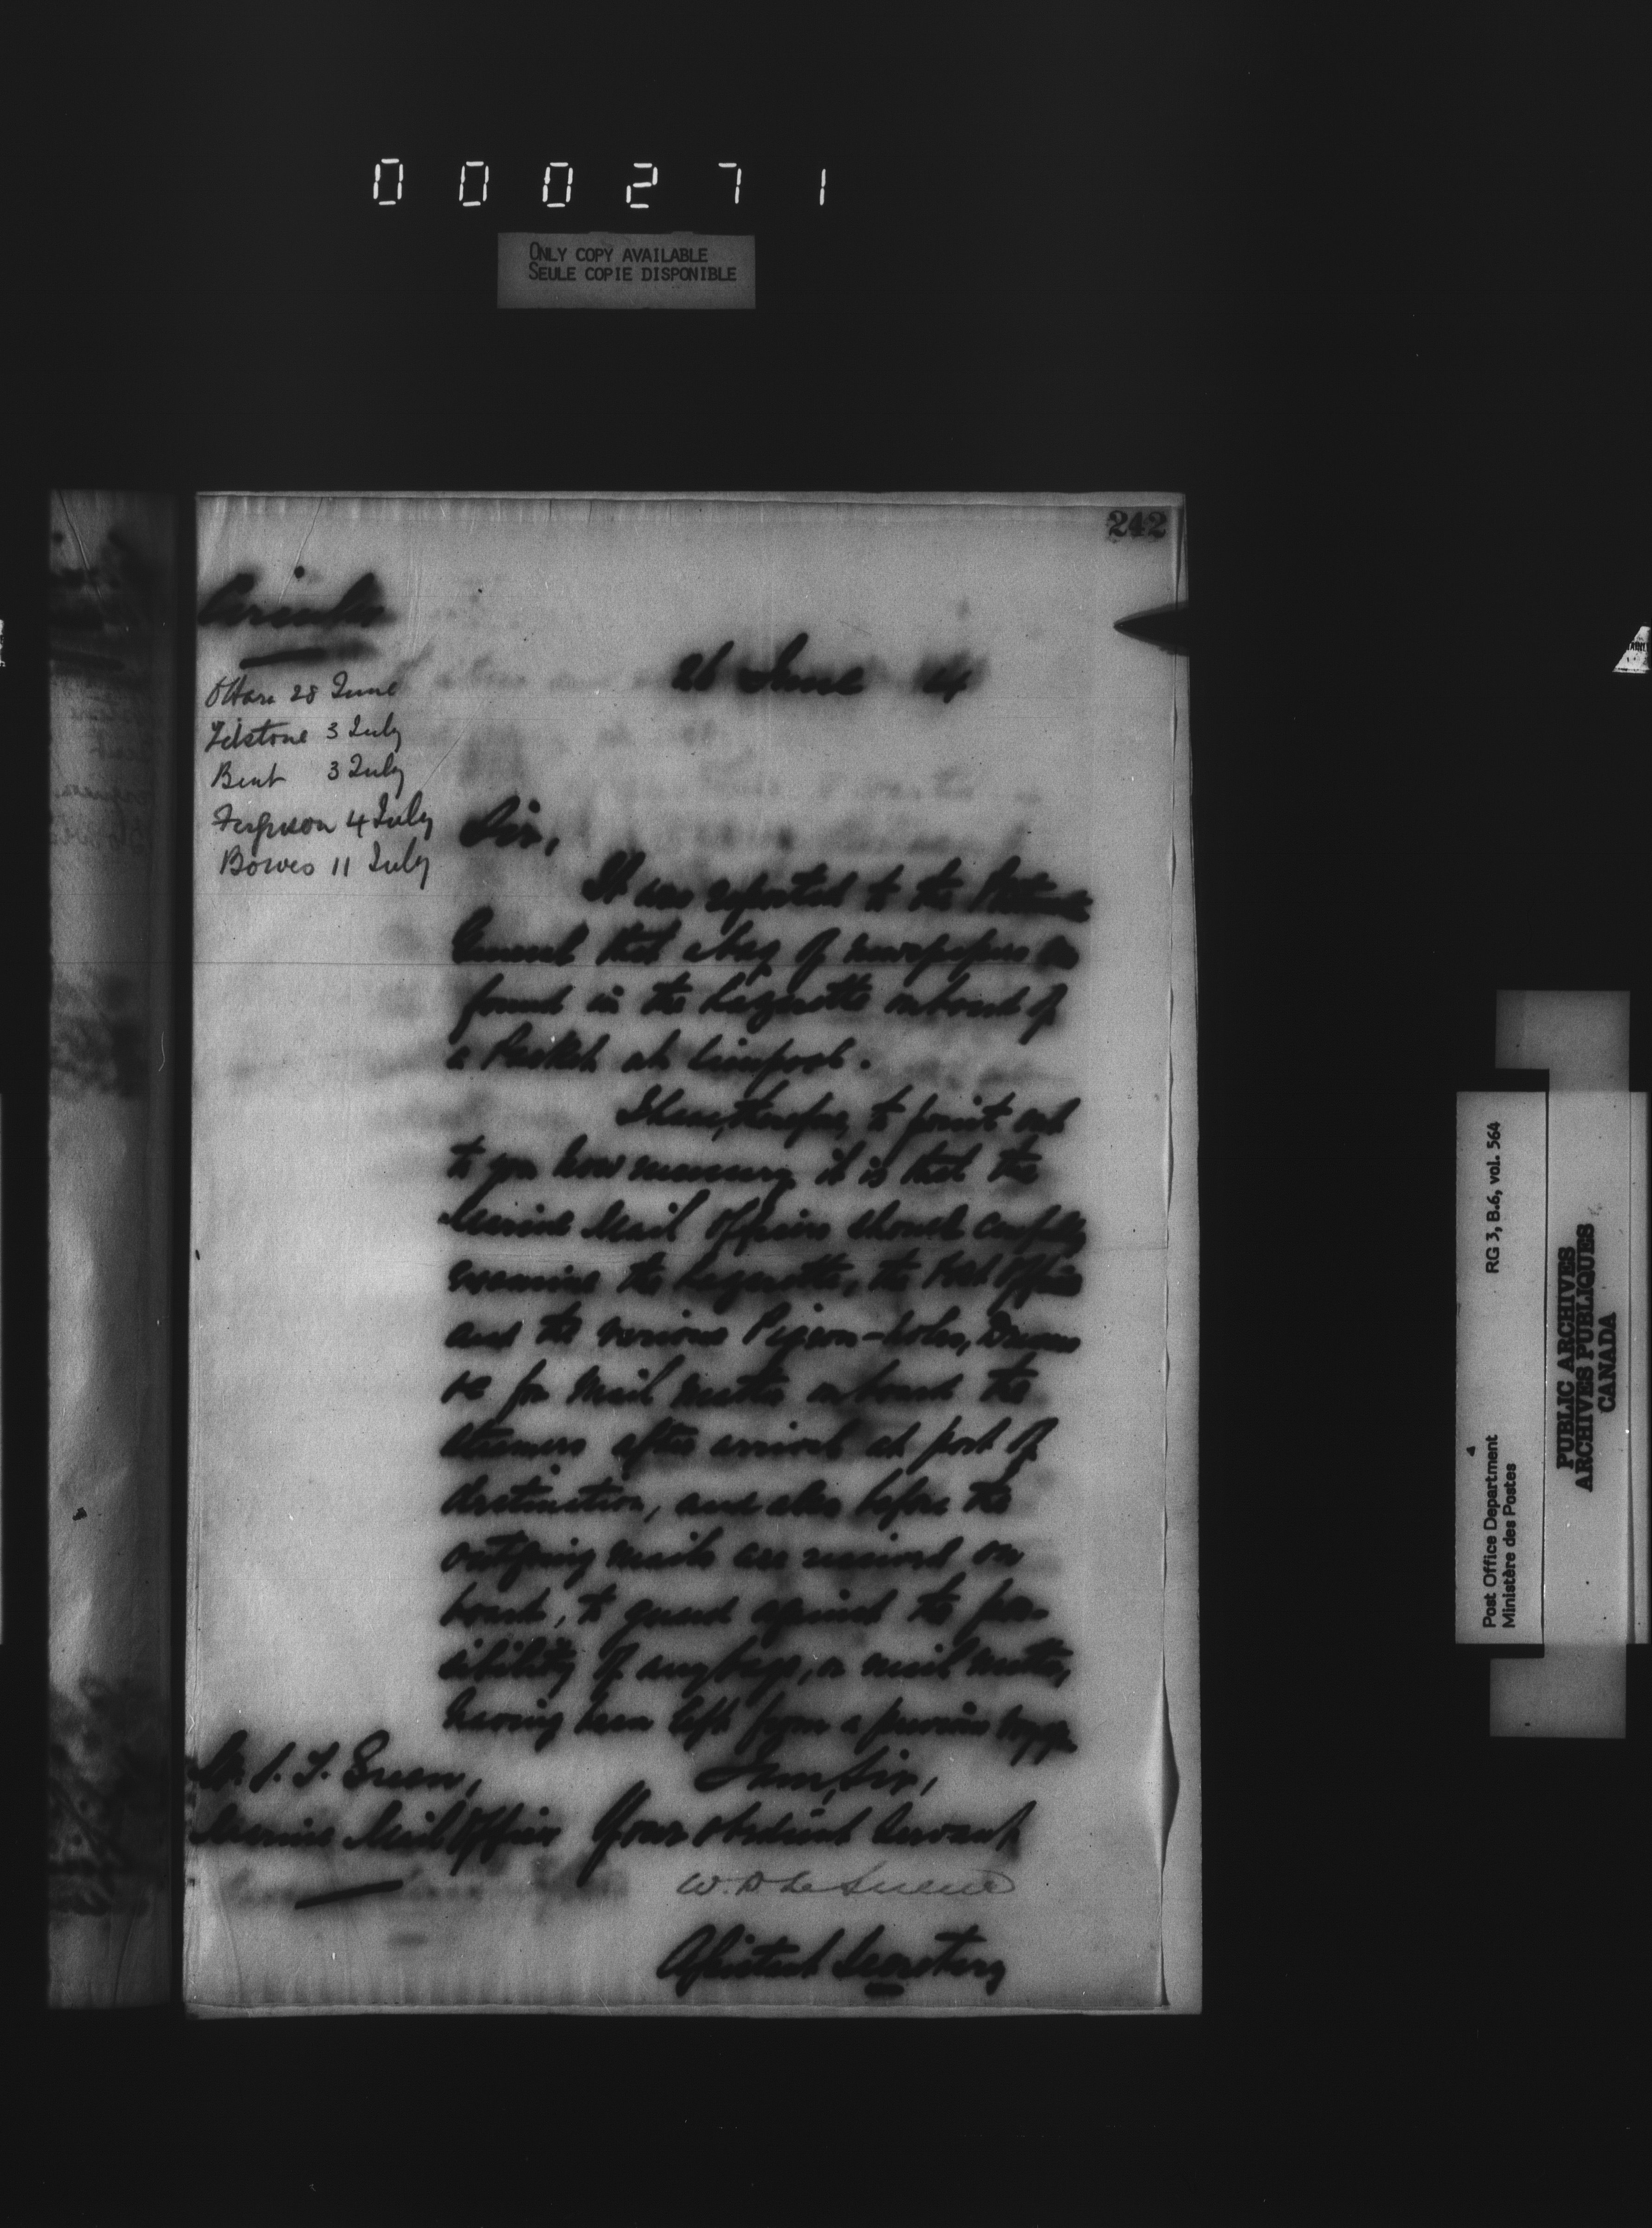 000271
ONLY COPY AVAILABLE
SEULE COPIE DISPONIBLE
242
Circular
26 June
O'Hara 28 June
Filstone 3 July
Bent 3 July
Ferguson 4 July
Bowes 11 July
Sir,
It was reported to the
General that a bag of newspapers was
found in the Lazarette on board of
a Packet at Liverpool.
I have, therefore, to point out
to you how necessary it is that the
Marine Mail Officers should carefully
examine the Lazarette, the Post Office
and the various Pigeon-holes, Drawers
&c for Mail matter on board the
steamers after arrival at port of
destination, and also before the
outgoing mails are received on
board, to guard against the pos-
sibility of any bags, or mail matter,
having been left from a previous voyage.
I am, Sir,
Your obedient Servant
Green,
Marine Mail Officer
W. D. LeSueur
Assistant Secretary
RG 3, B.6, vol. 564
Post Office Department
Ministère des Postes
PUBLIC ARCHIVES
ARCHIVES PUBLIQUES
CANADA